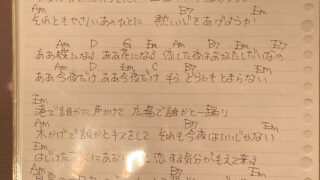 Am B7 Em
それともやさしいあのひとに 熱いいじをあげようか
Am D G Em Am B7 Em B7
ああ蝶になる ああ花になる 恋した夜はあなたしだいなの
Em Am D Em C B7 Em
ああ今夜だけ ああ今夜だけ もう どうにもとまらない
Em
港で誰かに声かけて 広場で誰かと一踊り
Am Em B7 Em
木かげで誰かとキスをして それも今夜はいいじゃない
Em
はじけた花火にあおられて 恋する気分がもえて来る
Am B7 Em